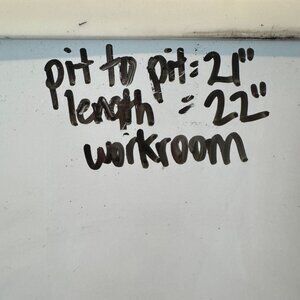 pit to pit = 21"
length = 22"
workroom